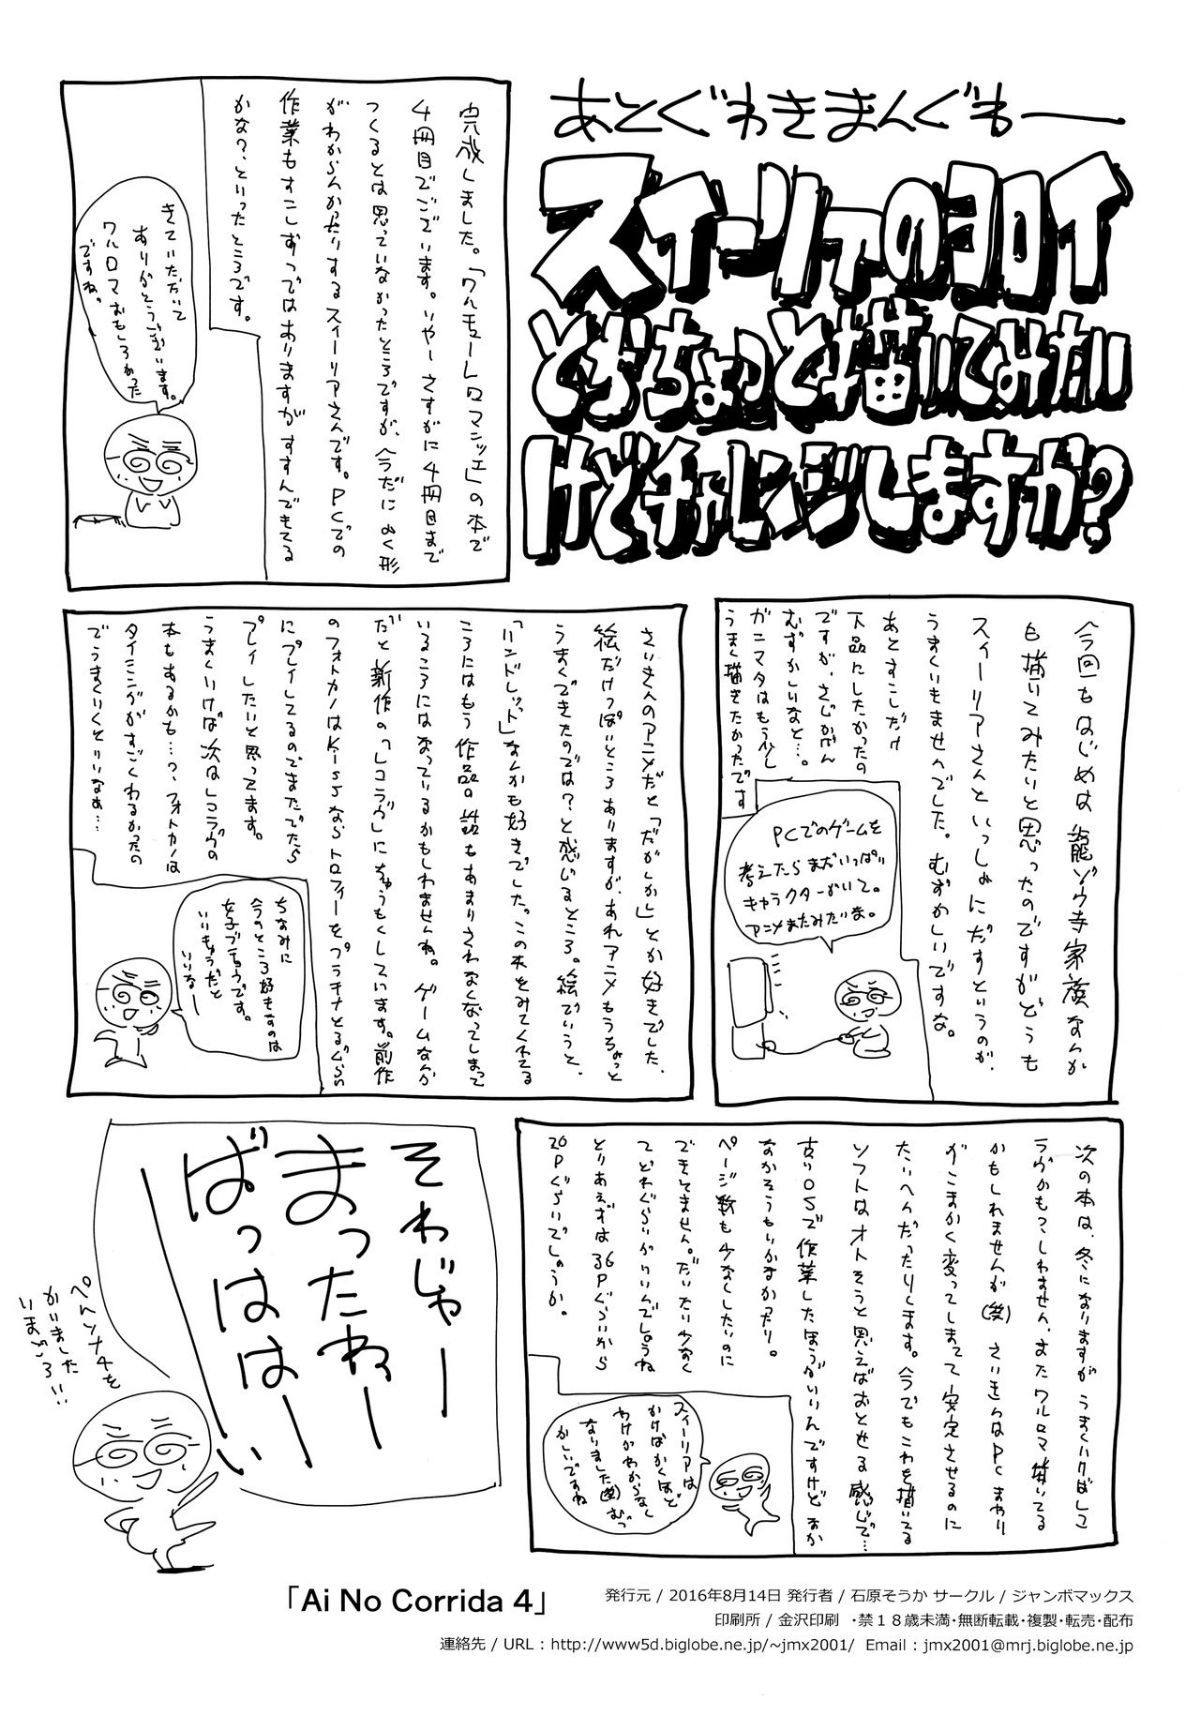 あとぐわきまんぐわー
スイーリアのヨロイ
とかちょっと描いてみたい
けどチャレンジしますか?
完成しました。「ワルキューレロマンツェ」の本で
4冊目でございます。いやーさすがに4冊目まで
つくるとは思っていなかったところですが、今だにぬく形
がわからんかったりするスイーリアさんです。PCでの
作業もすこしずつではありますがすすんでもてる
かな?、といったところです。
きていただいて
ありがとうございます。
ワルロマおもしろかった
ですね。
今回もはじめは龍ゾウ寺家族なんか
も描いてみたいと思ったのですがどうも
スイーリアさんといっしょにだすというのが、
うまくいきませんでした。むずかしいですな。
あとすこしだけ
下品にしたかったの
ですが、さじかげん
むずかしいなと…。
ガニマタはもう少し
うまく描きたかったです
PCでのゲームを
考えたらまだいっぱい
キャラクターがいて。
アニメまたみたいな。
さいきんのアニメだと「だがしかし」とか好きでした、
絵だけっぽいところありますが、あれアニメもうちょっと
うまくできたのでは?と感じるところ。絵でいうと、
「ハンドレッド」なんかも好きでした。この本をみてくれてる
ころにはもう作品の話もあまりされなくなってしまって
いるころにはなっているかもしれませんね。ゲームなんか
だと新作の「レコラヴ」にちゅうもくしています。前作
のフォトカノはKissならトロフィーをプラチナとるぐらい
にプレイしてるのでまたでたら
プレイしたいと思ってます。
うまくいけば次はレコラヴの
本もあるかも…?、フォトカノは
タイミングがすごくわるかったの
でうまくいくといいなぁ…
ちなみに
今のところ好きなのは
女子プロうです。
いいキャラだと
いいなー
次の本は、冬になりますがうまくいけばレコ
ラヴかもしれません、またワルロマ描いてる
かもしれませんが(笑) さいきんはPCまわり
がこまかく変ってしまって安定させるのに
たいへんだったりします。今でもこれを描いてる
ソフトはオトそうと思えばおとせる感じで…
古いOSで作業したほうがいいんですけどなか
なかそうもいかなかったり。
ページ数も少なくしたいのに
できてません。だいたい少なく
てどれぐらいがいいんでしょうね
とりあえずは36Pぐらいから
20Pぐらいでしょうか。
スイーリアは
かけばかくほど
わけがわからなく
なりました(笑)むず
かしいですね
それじゃー
まったねー
ばっははーい
ペルソナ4を
かいました
いまごろ!!
「Ai No Corrida 4」
発行元 / 2016年8月14日 発行者 / 石原そうか サークル / ジャンボマックス
印刷所 / 金沢印刷 ・禁18歳未満・無断転載・複製・転売・配布
連絡先 / URL : http://www5d.biglobe.ne.jp/~jmx2001/ Email : jmx2001@mrj.biglobe.ne.jp